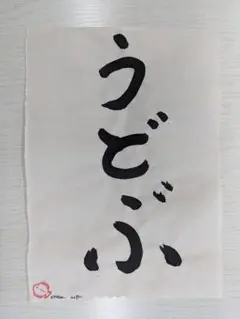 うどぶ